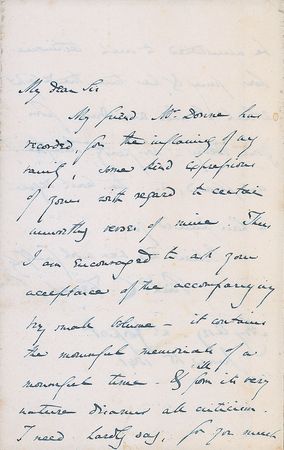 My dear Sir
My friend Mr. Donne has
recorded, for the inflaming of my
vanity, some kind expressions
of yours with regard to certain
unworthy verses of mine Thus
I am encouraged to ask your
acceptance of the accompanying
very small volume - it contains
the mournful memorials of a
mournful time - & from its very
nature disarms all criticism.
I need hardly say, for you much